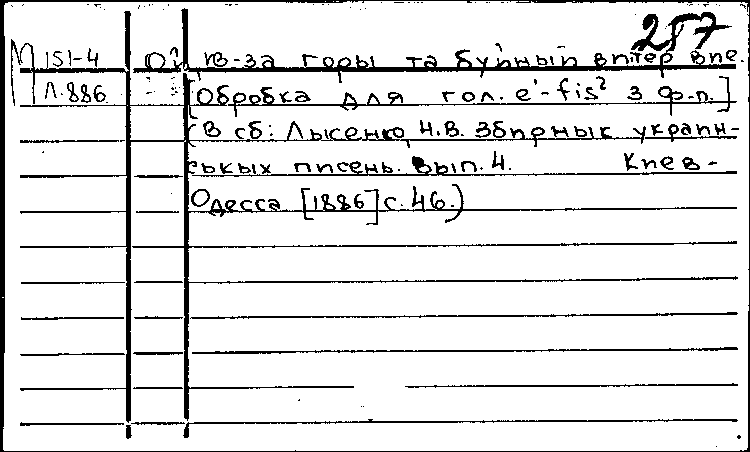 257
М 151-4 Ой, из-за горы та буйный витер вие.
Л.886 [Обробка для гол. e'-fis² з ф-п.]
(В сб: Лысенко, Н.В. Збирнык украин-
ськых писень. Вып. 4. Киев-
Одесса [1886] с. 46.)